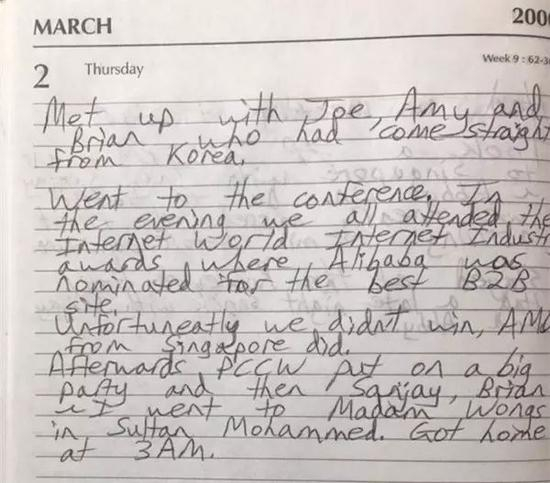 MARCH
200
2 Thursday
Week 9 : 62-3
Met up with Joe, Amy and
Brian who had come straigh
from Korea.
Went to the conference. In
the evening we all attended the
Internet World Internet Industr
awards, where Alibaba was
nominated for the best B2B
site.
Unfortuneatly we didn't win, AM
from Singapore did.
Afterwards, PCCW put on a big
party and then Sanjay, Brian
& I went to Madam Wongs
in Sultan Mohammed. Got home
at 3AM.